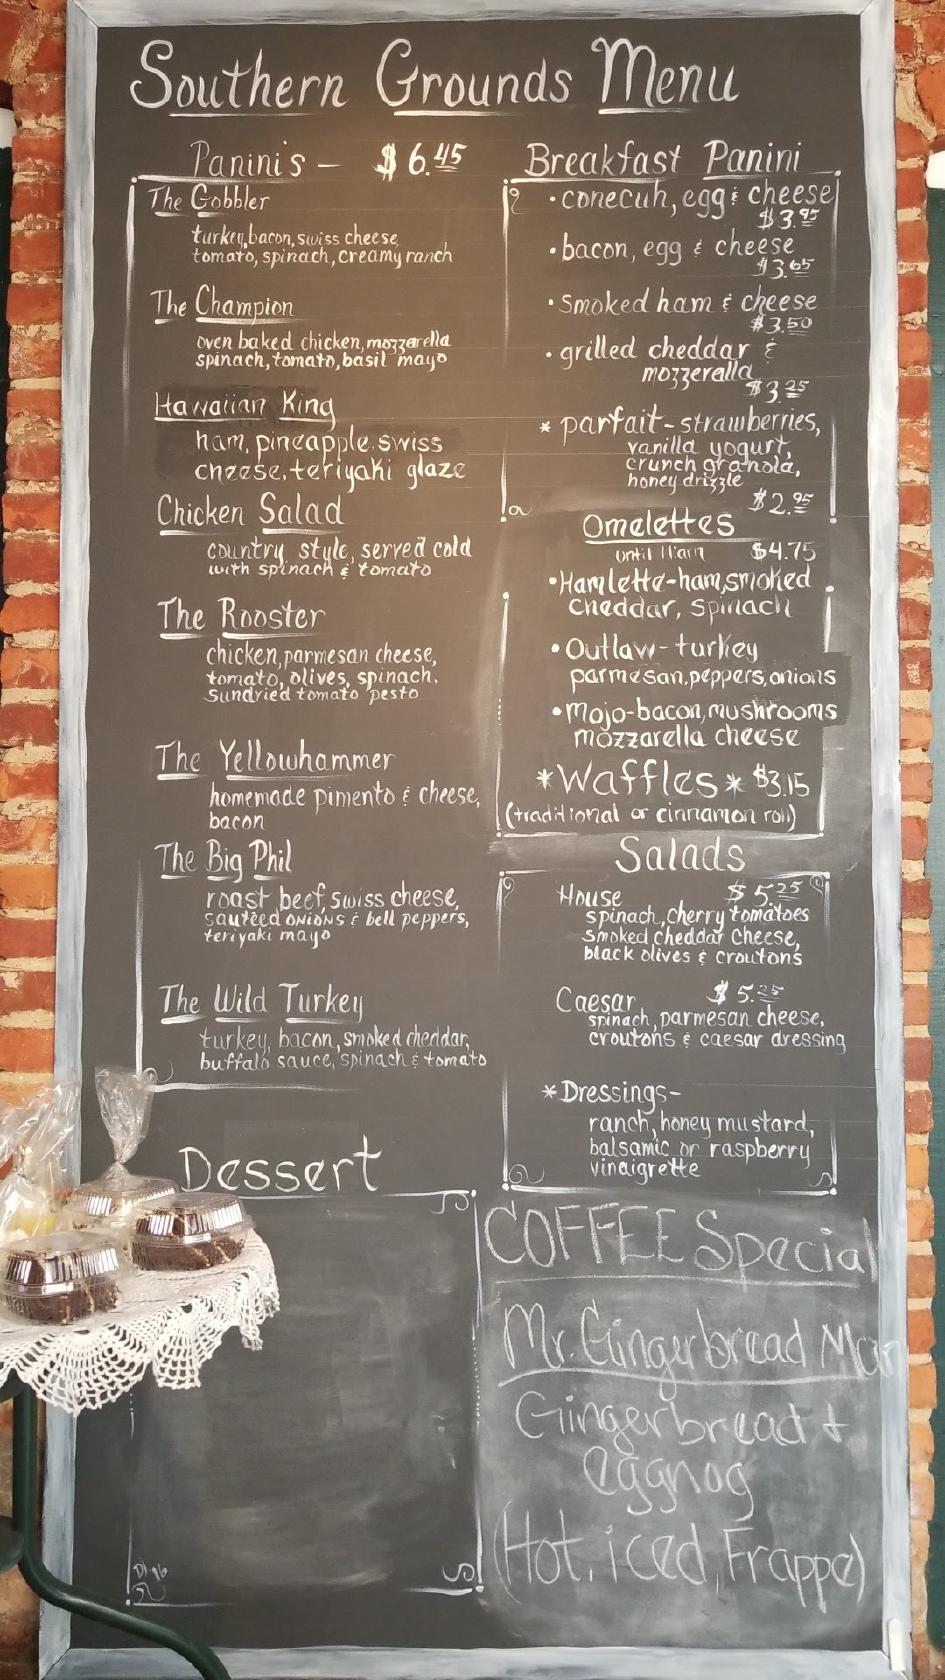 Southern Grounds Menu
Panini's - $6.45
The Gobbler
turkey, bacon, swiss cheese,
tomato, spinach, creamy ranch
The Champion
oven baked chicken, mozzerella
spinach, tomato, basil mayo
Hawaiian King
ham, pineapple, swiss
cheese, teriyaki glaze
Chicken Salad
country style, served cold
with spinach & tomato
The Rooster
chicken, parmesan cheese,
tomato, olives, spinach,
sundried tomato pesto
The Yellowhammer
homemade pimento & cheese,
bacon
The Big Phil
roast beef, swiss cheese,
sautéed onions & bell peppers,
teriyaki mayo
The Wild Turkey
turkey, bacon, smoked cheddar,
buffalo sauce, spinach & tomato
Dessert
Breakfast Panini
• conecuh, egg & cheese
$3.95
• bacon, egg & cheese
$3.65
• smoked ham & cheese
$3.50
• grilled cheddar &
mozzerella
$3.25
* parfait - strawberries,
vanilla yogurt,
crunch granola,
honey drizzle
$2.95
Omelettes
until 11am $4.75
• Hamlette - ham, smoked
cheddar, spinach
• Outlaw - turkey
parmesan, peppers, onions
• Mojo - bacon, mushrooms
mozzarella cheese
*Waffles* $3.15
(traditional or cinnamon roll)
Salads
House $5.25
spinach, cherry tomatoes
smoked cheddar cheese,
black olives & croutons
Caesar $5.25
spinach, parmesan cheese,
croutons & caesar dressing
* Dressings -
ranch, honey mustard,
balsamic or raspberry
vinaigrette
COFFEE Special
Mr. Gingerbread Man
Gingerbread +
eggnog
(Hot, iced, Frappe)